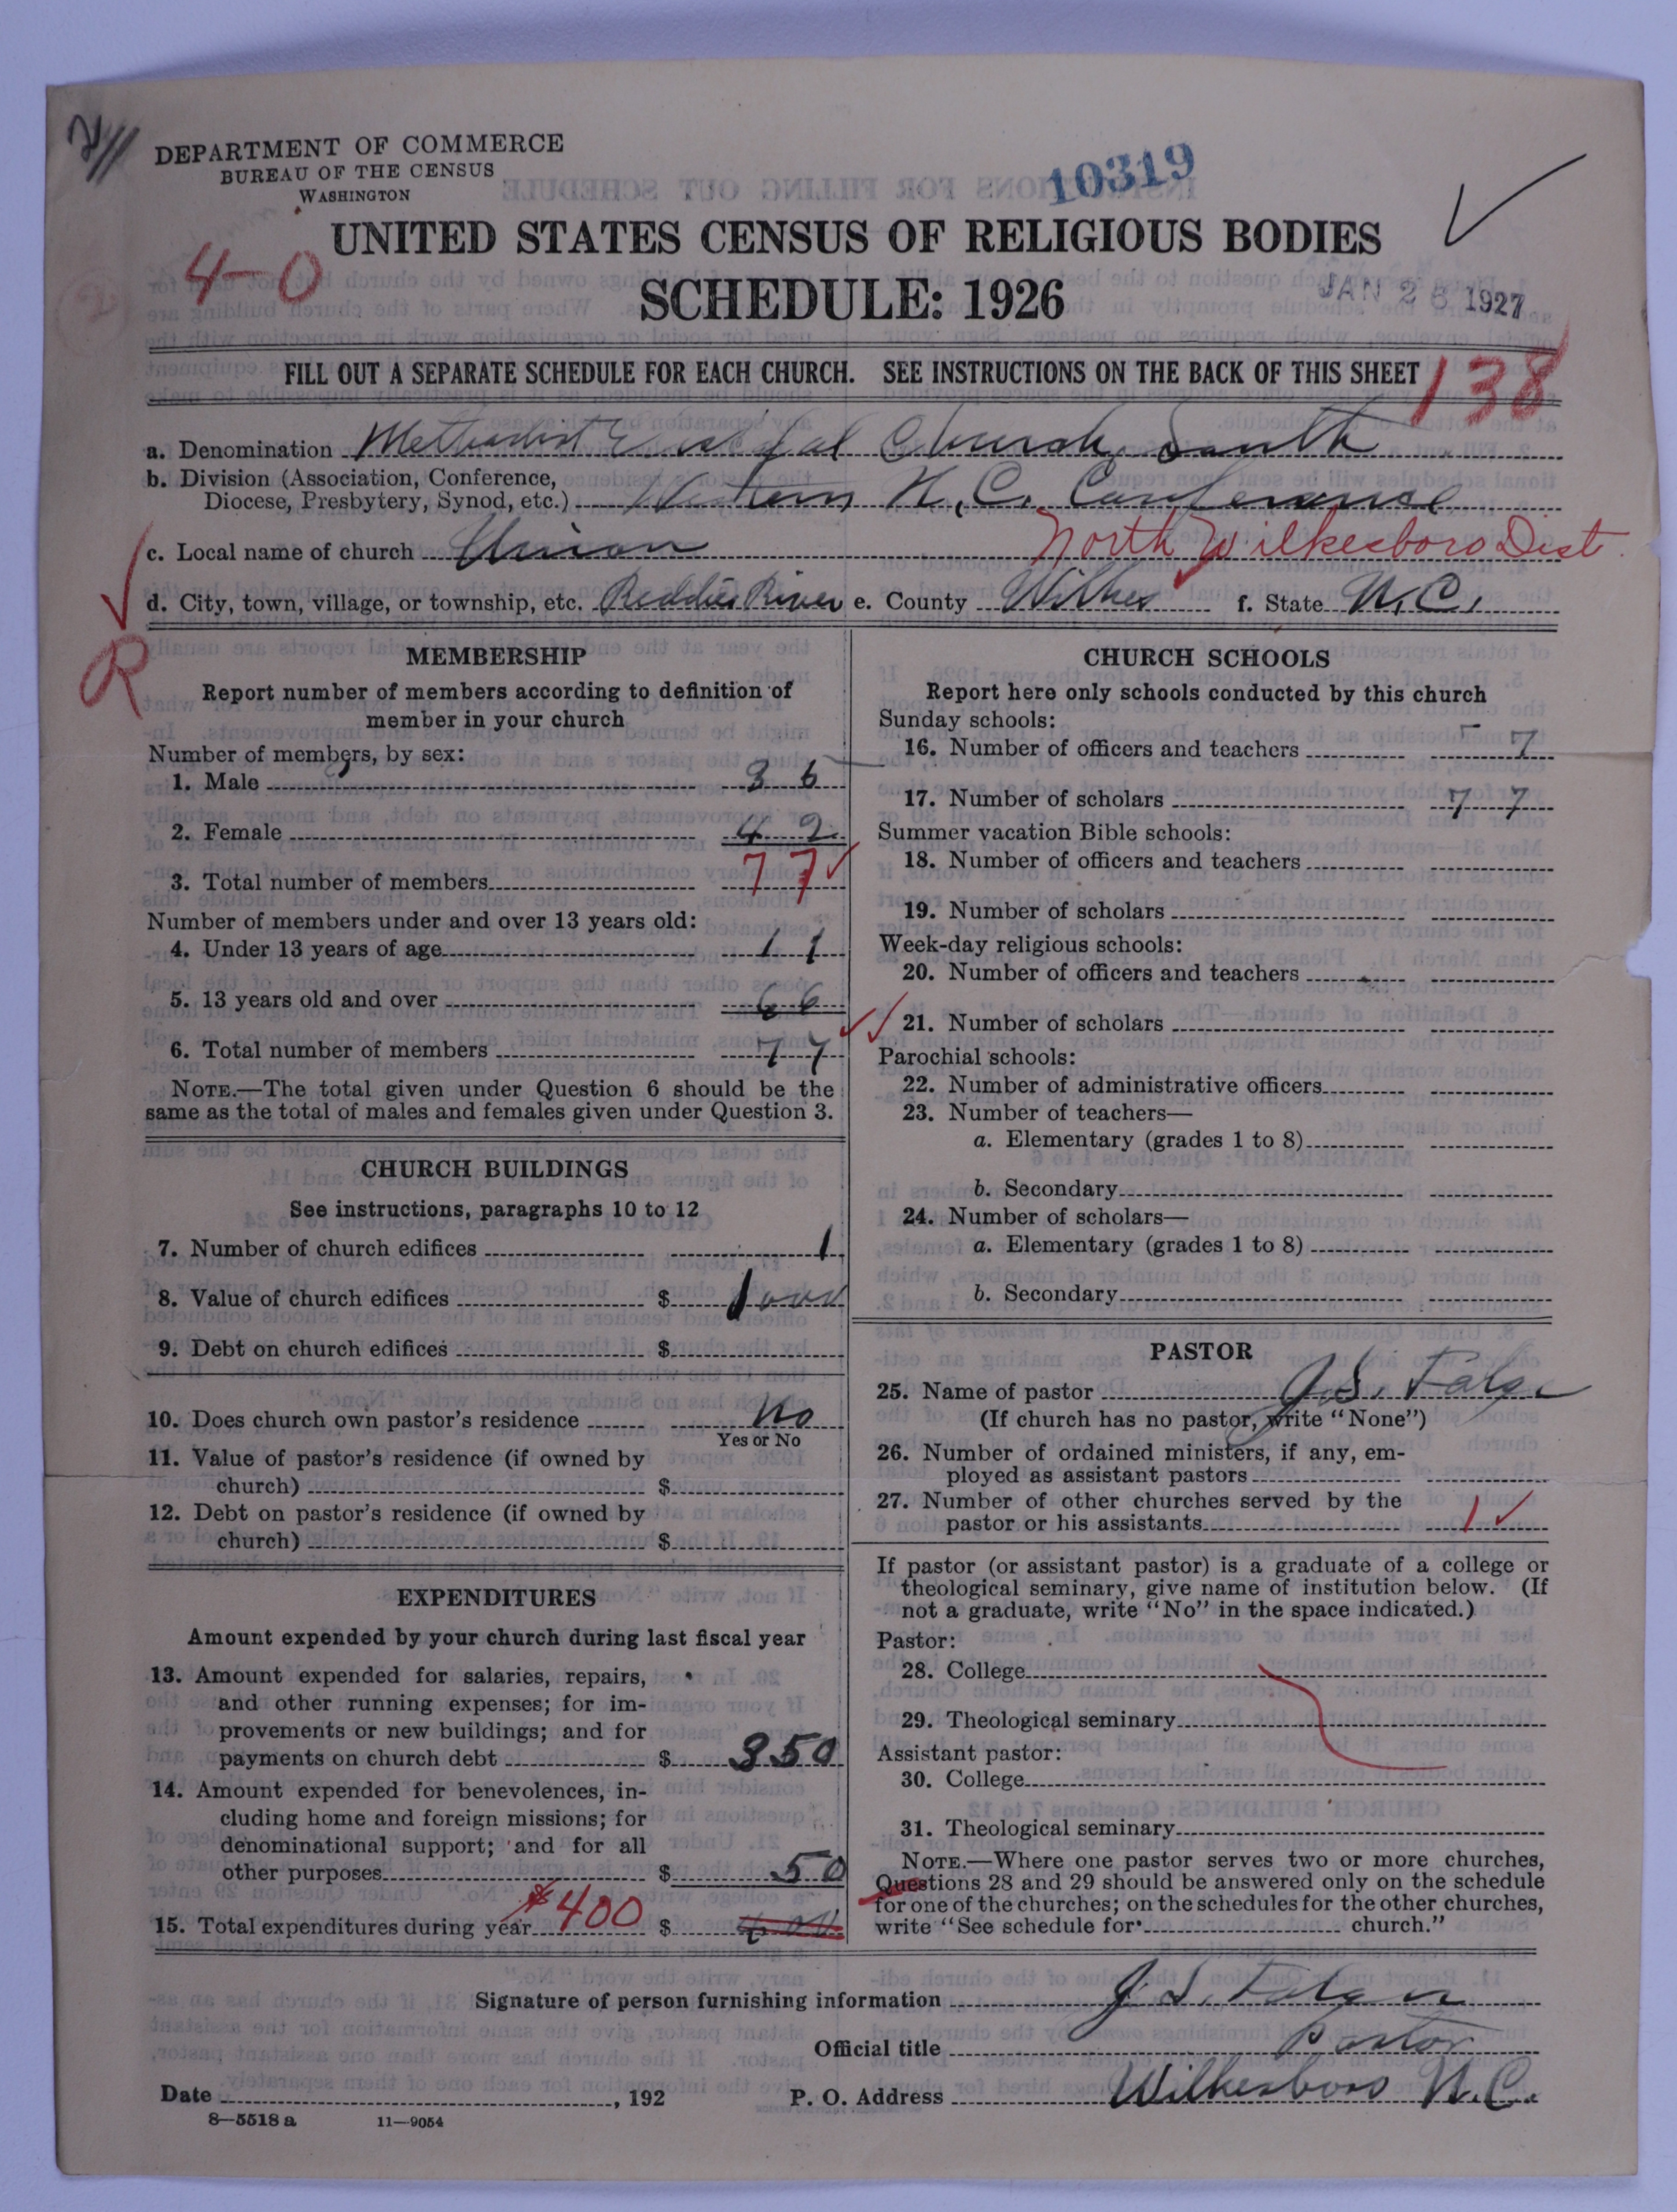 DEPARTMENT OF COMMERCE
BUREAU OF THE CENSUS
WASHINGTON
10319
UNITED STATES CENSUS OF RELIGIOUS BODIES
4-0
SCHEDULE: 1926
JAN 26 1927
FILL OUT A SEPARATE SCHEDULE FOR EACH CHURCH. SEE INSTRUCTIONS ON THE BACK OF THIS SHEET
138
a. Denomination Methodist Episcopal Church, South
b. Division (Association, Conference,
Diocese, Presbytery, Synod, etc.) Western N.C. Conference
c. Local name of church Union North Wilkesboro Dist.
d. City, town, village, or township, etc. Reddies River e. County Wilkes f. State N.C.
R
MEMBERSHIP
Report number of members according to definition of
member in your church
Number of members, by sex:
1. Male 36
2. Female 42
3. Total number of members 77
Number of members under and over 13 years old:
4. Under 13 years of age 11
5. 13 years old and over 66
6. Total number of members 77
NOTE.—The total given under Question 6 should be the
same as the total of males and females given under Question 3.
CHURCH BUILDINGS
See instructions, paragraphs 10 to 12
7. Number of church edifices 1
8. Value of church edifices $ 1000
9. Debt on church edifices $
10. Does church own pastor's residence No
Yes or No
11. Value of pastor's residence (if owned by
church) $
12. Debt on pastor's residence (if owned by
church) $
EXPENDITURES
Amount expended by your church during last fiscal year
13. Amount expended for salaries, repairs,
and other running expenses; for im-
provements or new buildings; and for
payments on church debt $ 350
14. Amount expended for benevolences, in-
cluding home and foreign missions; for
denominational support; and for all
other purposes $ 50
15. Total expenditures during year $400 $
CHURCH SCHOOLS
Report here only schools conducted by this church
Sunday schools:
16. Number of officers and teachers 7
17. Number of scholars 77
Summer vacation Bible schools:
18. Number of officers and teachers
19. Number of scholars
Week-day religious schools:
20. Number of officers and teachers
21. Number of scholars
Parochial schools:
22. Number of administrative officers
23. Number of teachers—
a. Elementary (grades 1 to 8)
b. Secondary
24. Number of scholars—
a. Elementary (grades 1 to 8)
b. Secondary
PASTOR
25. Name of pastor J.S.
(If church has no pastor, write "None")
26. Number of ordained ministers, if any, em-
ployed as assistant pastors
27. Number of other churches served by the
pastor or his assistants 1
If pastor (or assistant pastor) is a graduate of a college or
theological seminary, give name of institution below. (If
not a graduate, write "No" in the space indicated.)
Pastor:
28. College
29. Theological seminary
Assistant pastor:
30. College
31. Theological seminary
NOTE.—Where one pastor serves two or more churches,
Questions 28 and 29 should be answered only on the schedule
for one of the churches; on the schedules for the other churches,
write "See schedule for church."
Signature of person furnishing information J. S.
Official title Pastor
Date , 192 P. O. Address Wilkesboro N.C.
8—5518 a 11—9054